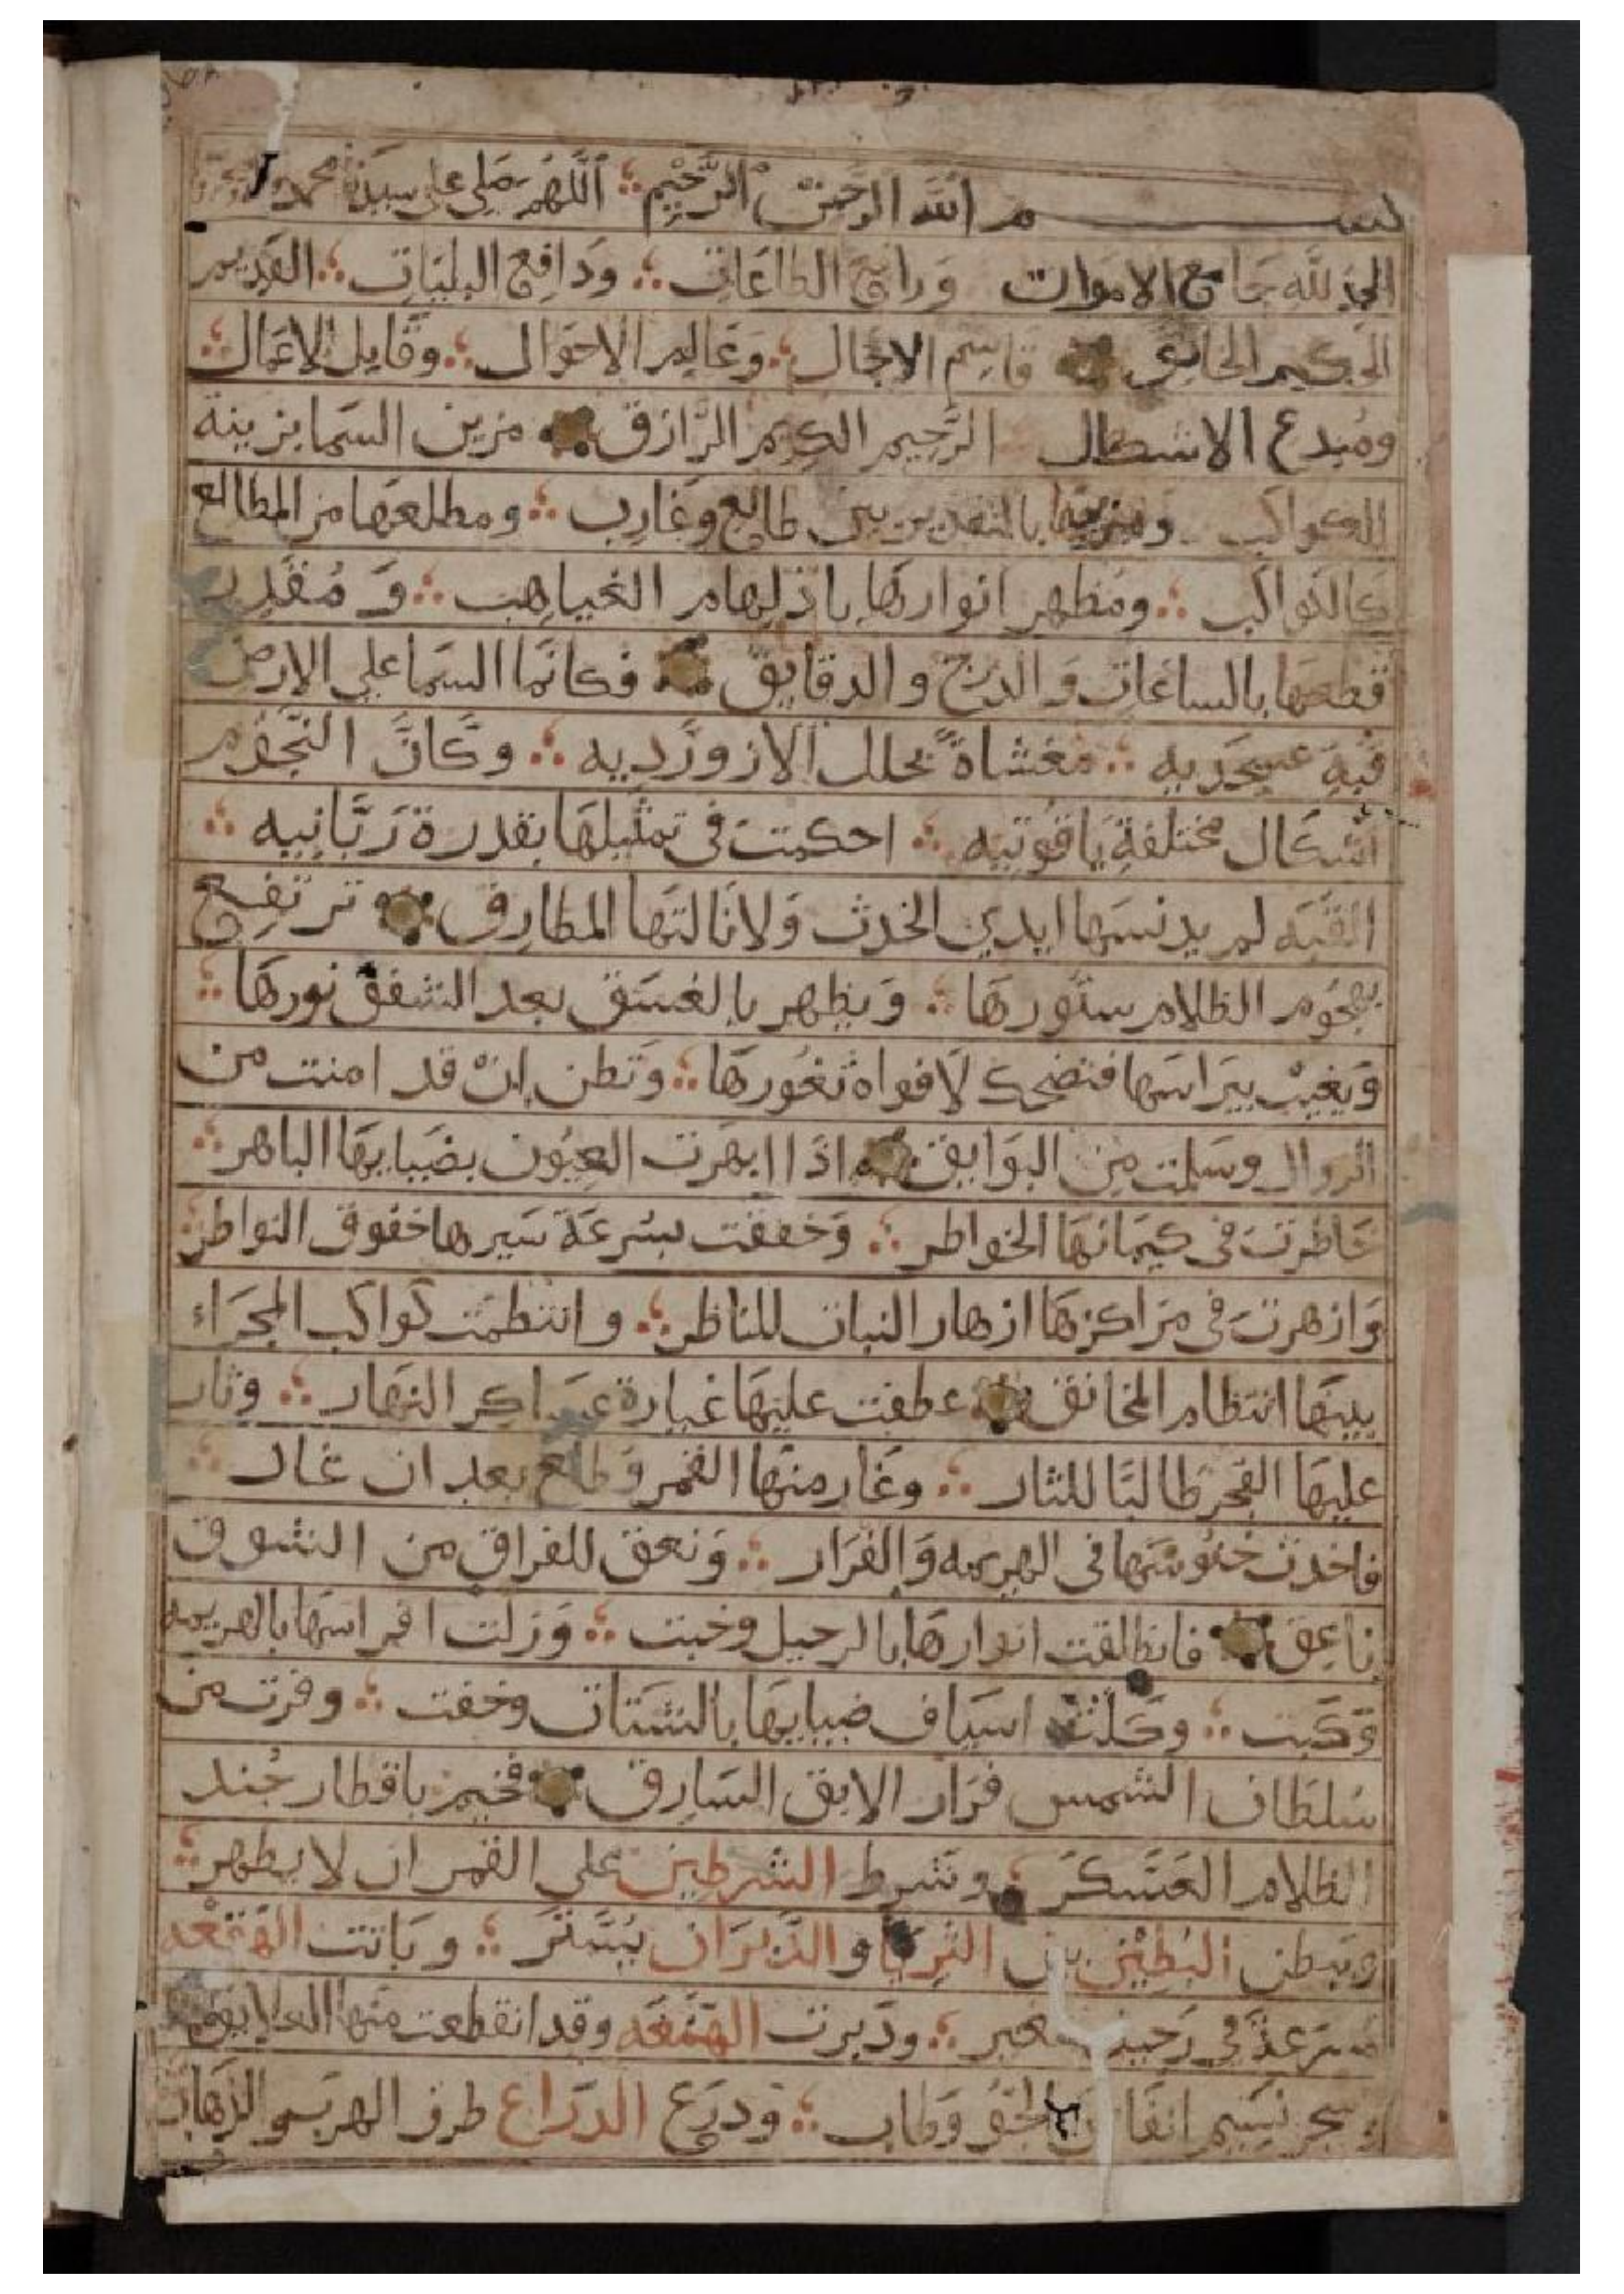 بسم الله الرحمن الرحيم ؞ اللهم صلي على سيدنا محمد
الحمد لله جامع الاموات ورافع الطاعات ؞ ودافع البليات ؞ القديم
الحكيم الخالق قاسم الاجال ؞ وعالم الاحوال ؞ وقابل الاعمال ؞
ومبدع الاشكال الرحيم الكريم الرازق مزين السما بزينة
الكواكب بالتقدير بين طالع وغارب ؞ ومطلعها من المطالع
كالكواكب ؞ ومظهر انوارها باذلهام الغياهب ؞ ومقدر
قطعها بالساعات والدرج والدقايق فكانما السما على الارض
قبة عسجديه ؞ مغشاة بحلل الازورديه ؞ وكان النجوم
اشكال مختلفة ياقوتيه ؞ احكمت في تمثيلها بقدرة ربانيه ؞
القبه لم يدنسها ايدي الحدث ولا نالتها المطارق ترتفع
بهجوم الظلام ستورها ؞ ويظهر بالغسق بعد الشفق نورها ؞
ويغيب بيراسها فتضحك لافواه ثغورها ؞ وتظن ان قد امنت من
الزوال وسلمت من البوايق اذا ابهرت العيون بضيايها الباهر ؞
خاطرت في كيمانها الخواطر ؞ وخفقت بسرعة سيرها خفوق النواظر ؞
وازهرت في مراكزها ازهار النبات للناظر ؞ وانتظمت كواكب المجراء
بينها انتظام المخانق عطفت عليها غبارة عساكر النهار ؞ وثار
عليها الفجر طالبا للثار ؞ وغار منها القمر وطلع بعد ان غار ؞
فاخذت جيوشها في الهزيمه والفرار ؞ ونعق للفراق من الشوق
ناعق فانطلقت انوارها بالرحيل وخبت ؞ وزلت افراسها بالهزيمه
وكبت ؞ وكلت اسياف ضيايها بالشتات وخفت ؞ وفرت من
سلطان الشمس فرار الابق السارق فخيم باقطار جند
الظلام العسكر ؞ وشرط الشرطين على القمر ان لا يظهر ؞
وبطن البطين بين الثريا والدبران يستتر ؞ وباتت الهقعه
مسرعة في ؞ ودبرت الهنعه وقد انقطعت منها العلايق
نسيم الجو وطاب ؞ ودرع الذراع طرف الهرب والذهاب